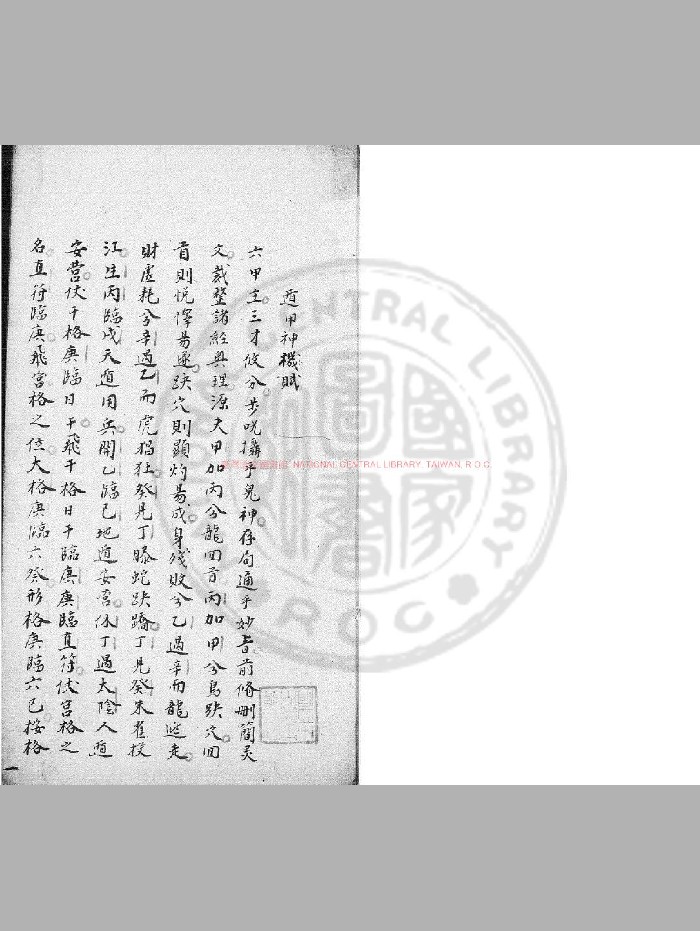 遁甲神機賦
六甲主三才攸分步咒攝乎鬼神存局通乎妙旨前脩刪簡灵
文裁整諸經奥理源夫甲加丙兮龍回首丙加甲兮鳥趺穴回
首則悦懌易遂趺穴則顯灼易成身殘敗兮乙過辛而龍逃走
財虛耗兮辛過乙而虎猖狂癸見丁螣蛇趺蹻丁見癸朱雀投
江生丙臨戊天遁用兵開乙臨己地遁安营休丁過太陰人遁
安营伏干格庚臨日干飛干格日干臨庚庚臨直符伏宫格之
名直符臨庚飛宫格之位大格庚臨六癸形格庚臨六己按格
NATIONAL CENTRAL LIBRARY, TAIWAN, R.O.C
CENTRAL LIBRARY
ROC
國家圖書館